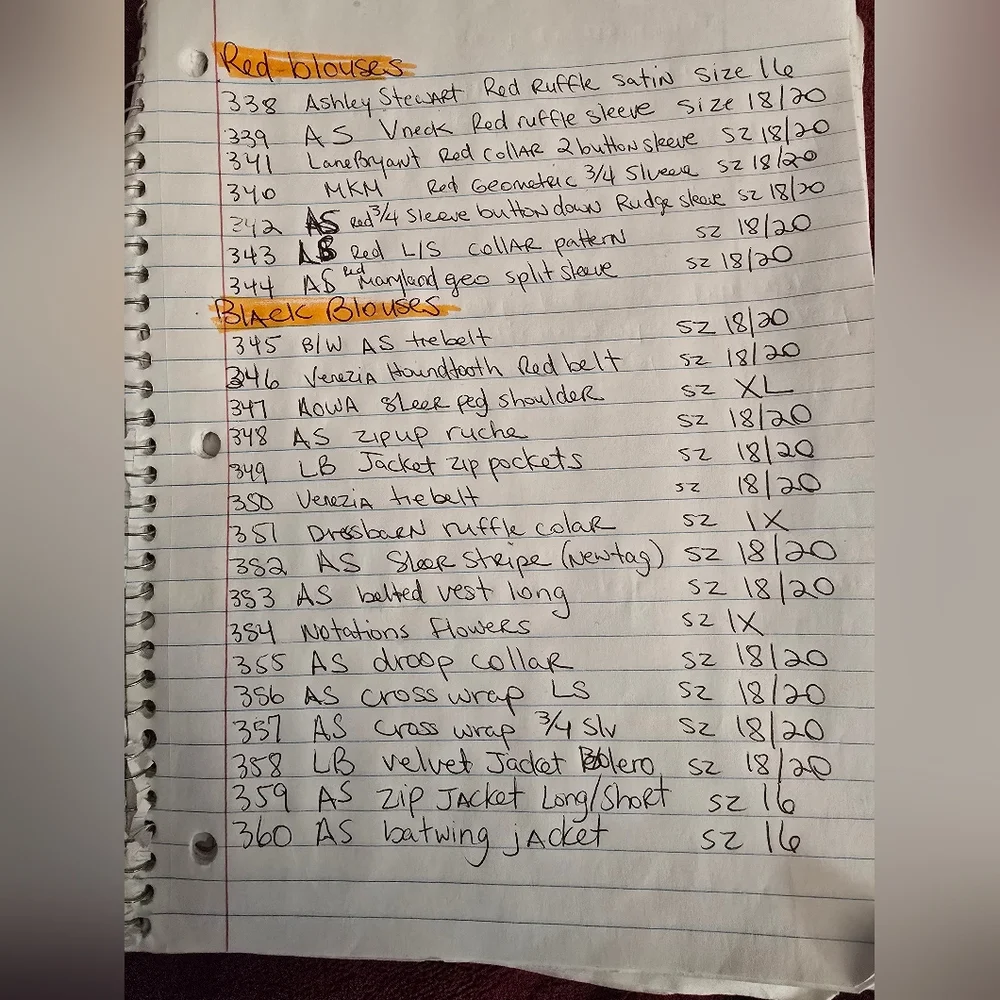 Red blouses
338 Ashley Stewart Red Ruffle Satin Size 16
339 AS Vneck Red ruffle sleeve Size 18/20
341 LaneBryant Red Collar 2 button sleeve SZ 18/20
340 MKM Red Geometric 3/4 Slveeve SZ 18/20
342 AS Red 3/4 Sleeve button down Rudge sleeve SZ 18/20
343 LB Red L/S Collar pattern SZ 18/20
344 AS red Maryland geo split sleeve SZ 18/20
Black Blouses
345 B/W AS tiebelt SZ 18/20
346 Venezia Houndtooth Red belt SZ 18/20
347 peg shoulder SZ XL
348 AS zip up ruche SZ 18/20
349 LB Jacket zip pockets SZ 18/20
350 Venezia tiebelt SZ 18/20
351 Dressbarn ruffle colar SZ 1X
352 AS Sleer Stripe (New tag) SZ 18/20
353 AS belted vest long SZ 18/20
354 Notations Flowers SZ 1X
355 AS droop collar SZ 18/20
356 AS cross wrap LS SZ 18/20
357 AS cross wrap 3/4 Slv SZ 18/20
358 LB velvet Jacket Bolero SZ 18/20
359 AS Zip Jacket Long/Short SZ 16
360 AS batwing jacket SZ 16